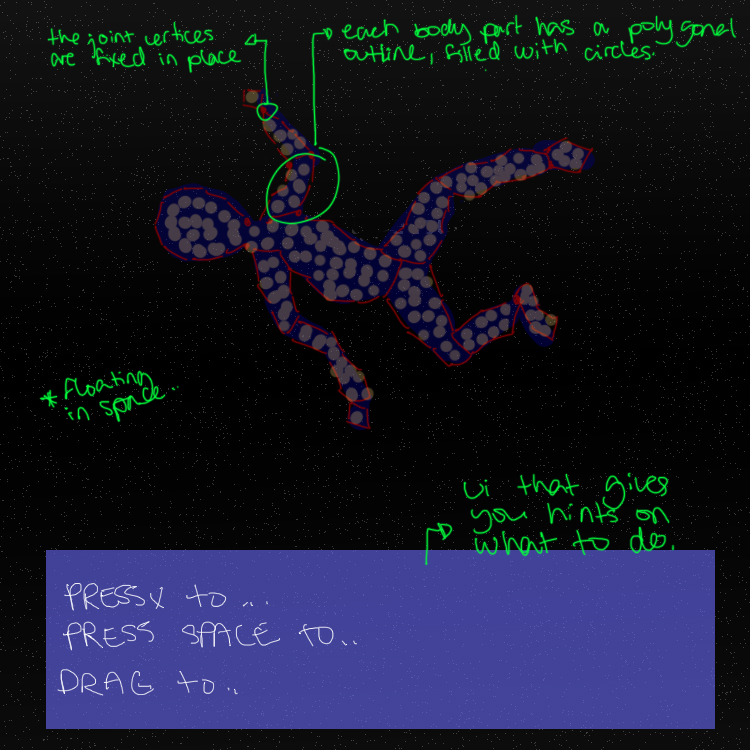 the joint vertices
are fixed in place
each body part has a polygonal
outline, filled with circles.
* floating
in space..
ui that gives
you hints on
what to do.
PRESS X to...
PRESS SPACE to..
DRAG to..